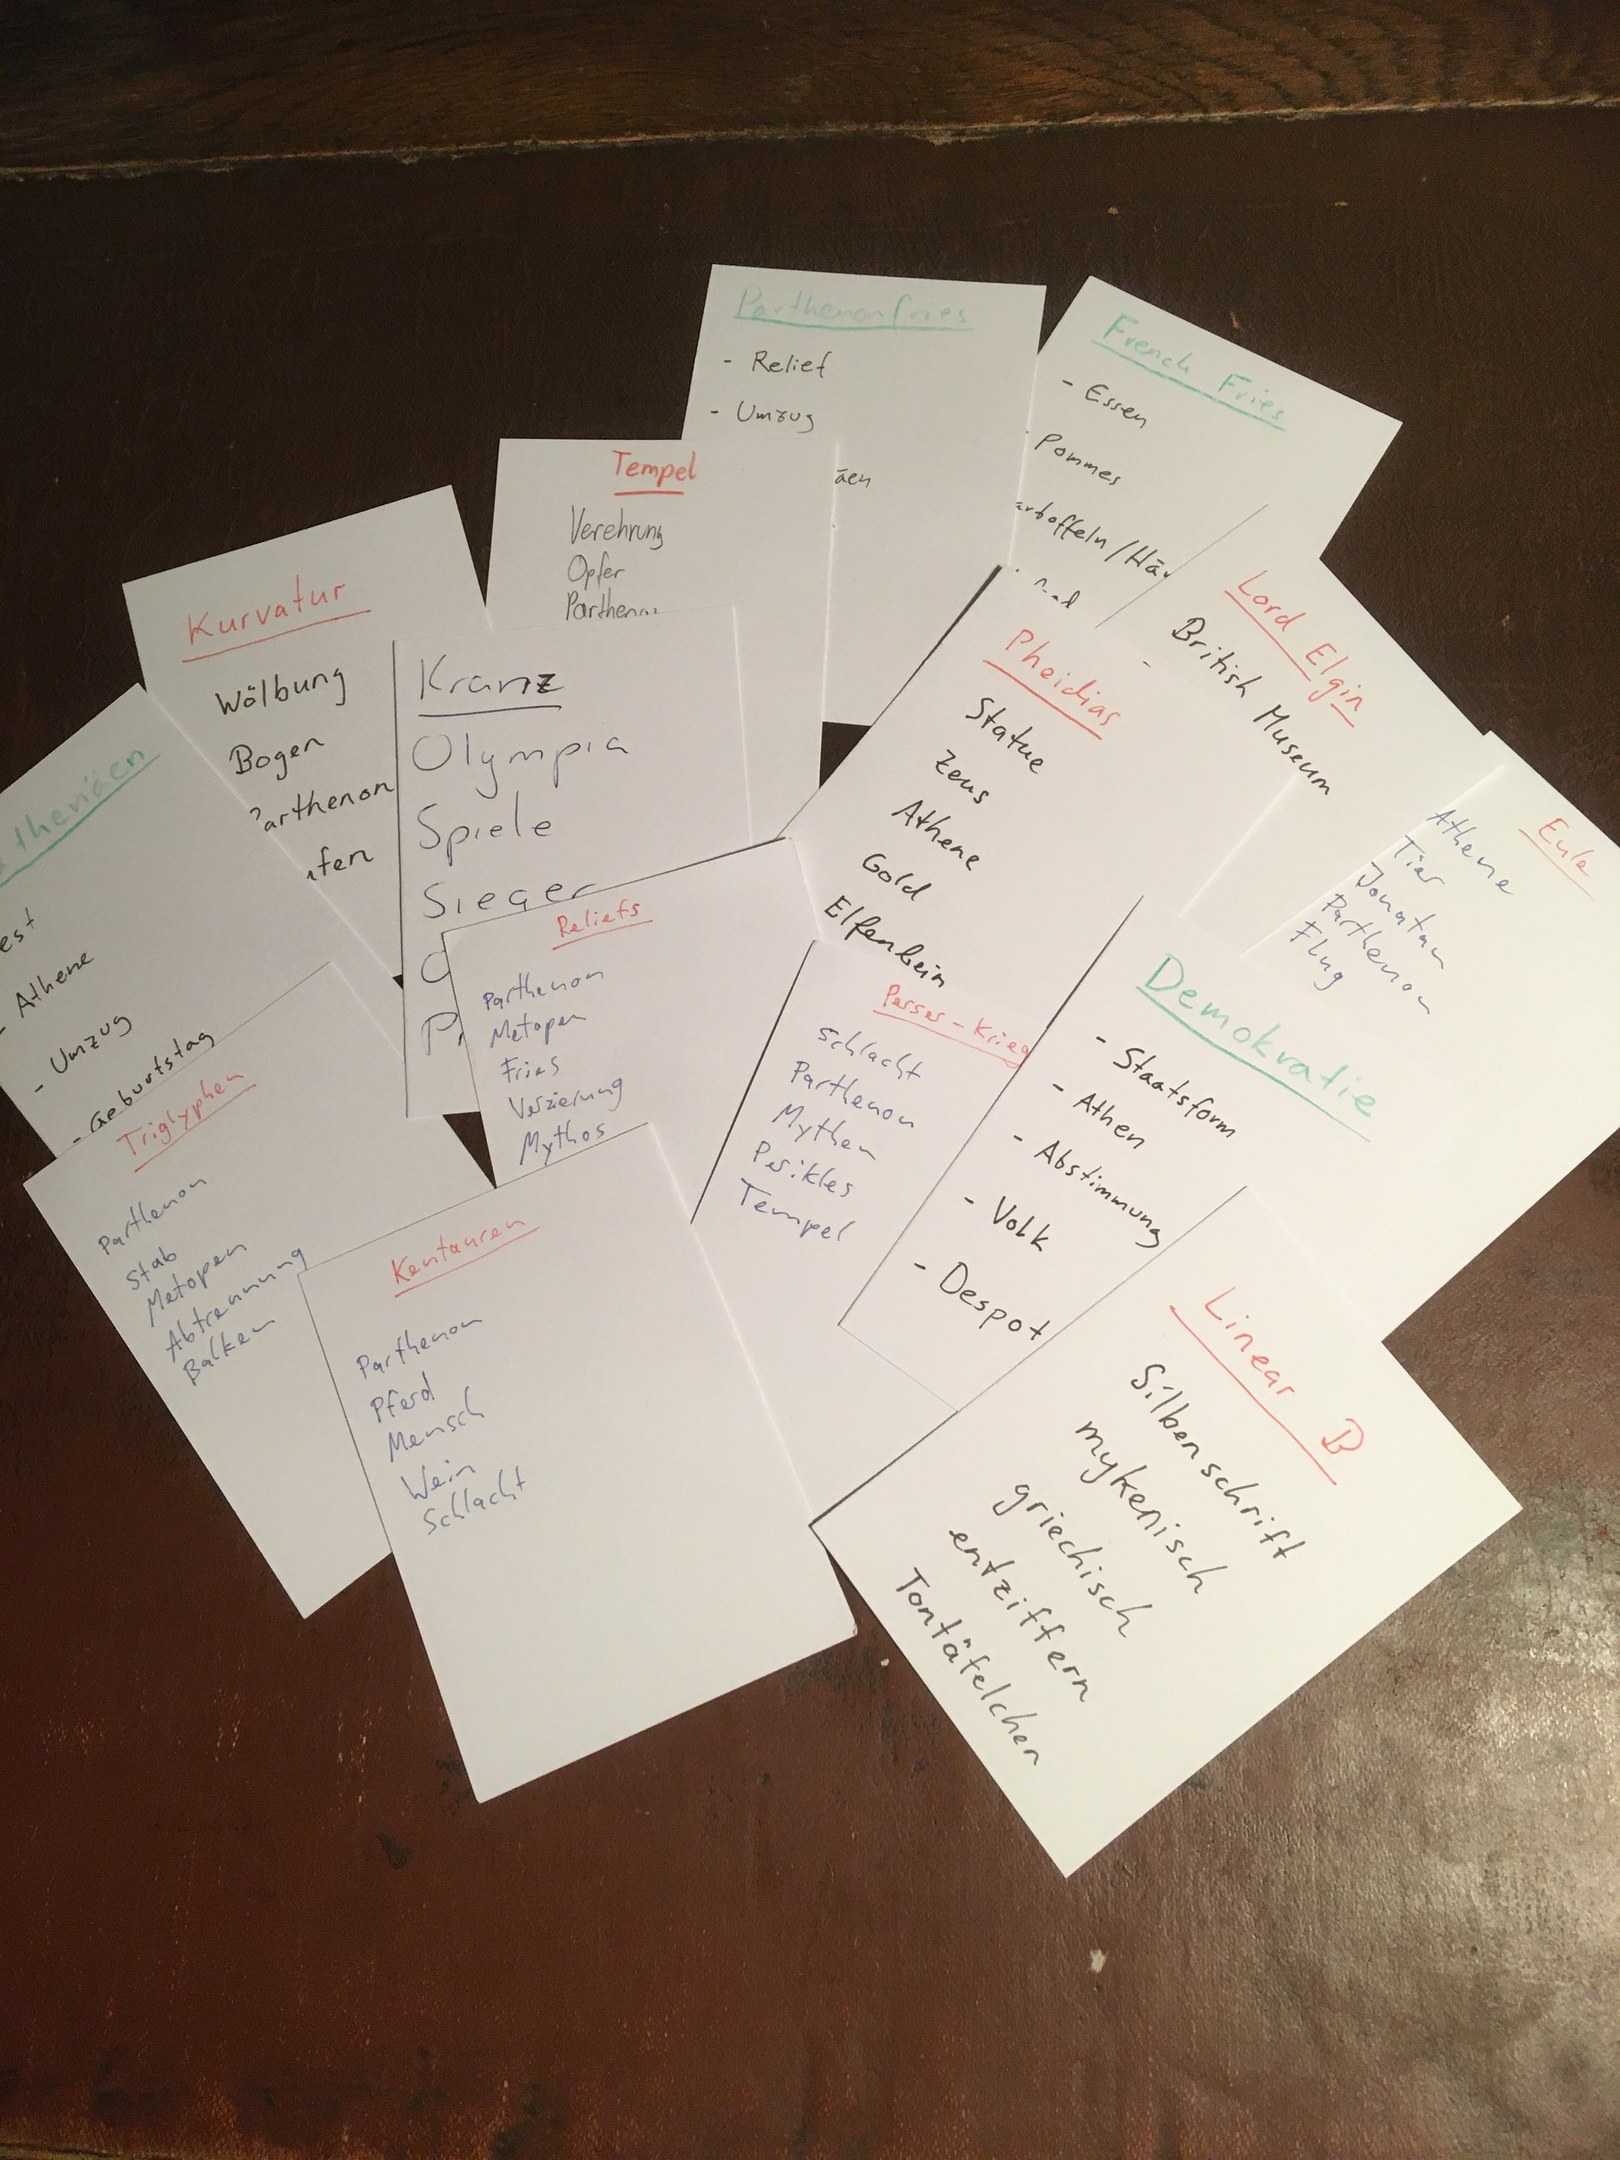 Parthenonfries
- Relief
- Umzug
äen
French Fries
- Essen
Pommes
Tempel
Verehrung
Opfer
Kurvatur
Wölbung
Bogen
Parthenon
Kranz
Olympia
Spiele
Sieger
Lord Elgin
British Museum
Pheidias
Statue
Zeus
Athene
Gold
Elfenbein
Eule
Athene
Tier
Jonatan
Parthenon
Flug
- Athene
- Umzug
- Geburtstag
Reliefs
Parthenon
Metopen
Fries
Verzierung
Mythos
Perser-Krieg
Schlacht
Parthenon
Mythen
Perikles
Tempel
Demokratie
- Staatsform
- Athen
- Abstimmung
- Volk
- Despot
Triglyphen
Parthenon
Stab
Metopen
Abtrennung
Balken
Kentauren
Parthenon
Pferd
Mensch
Wein
Schlacht
Linear B
Silbenschrift
mykenisch
griechisch
entziffern
Tontäfelchen